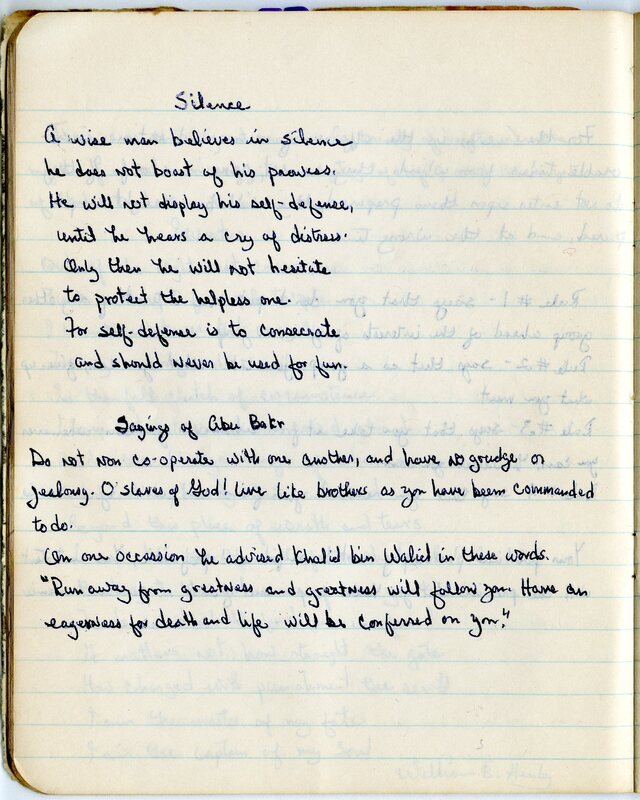 Silence
A wise man believes in silence
he does not boast of his prowess.
He will not display his self-defense,
until he hears a cry of distress.
Only then he will not hesitate
to protect the helpless one.
For self-defense is to consecrate
and should never be used for fun.
Sayings of Abu Bakr
Do not non co-operate with one another, and have no grudge or
jealousy. O'slaves of God! live like brothers as you have been commanded
to do.
On one occassion he advised Khalid bin Walid in these words.
"Run away from greatness and greatness will follow you. Have an
eagerness for death and life will be conferred on you."